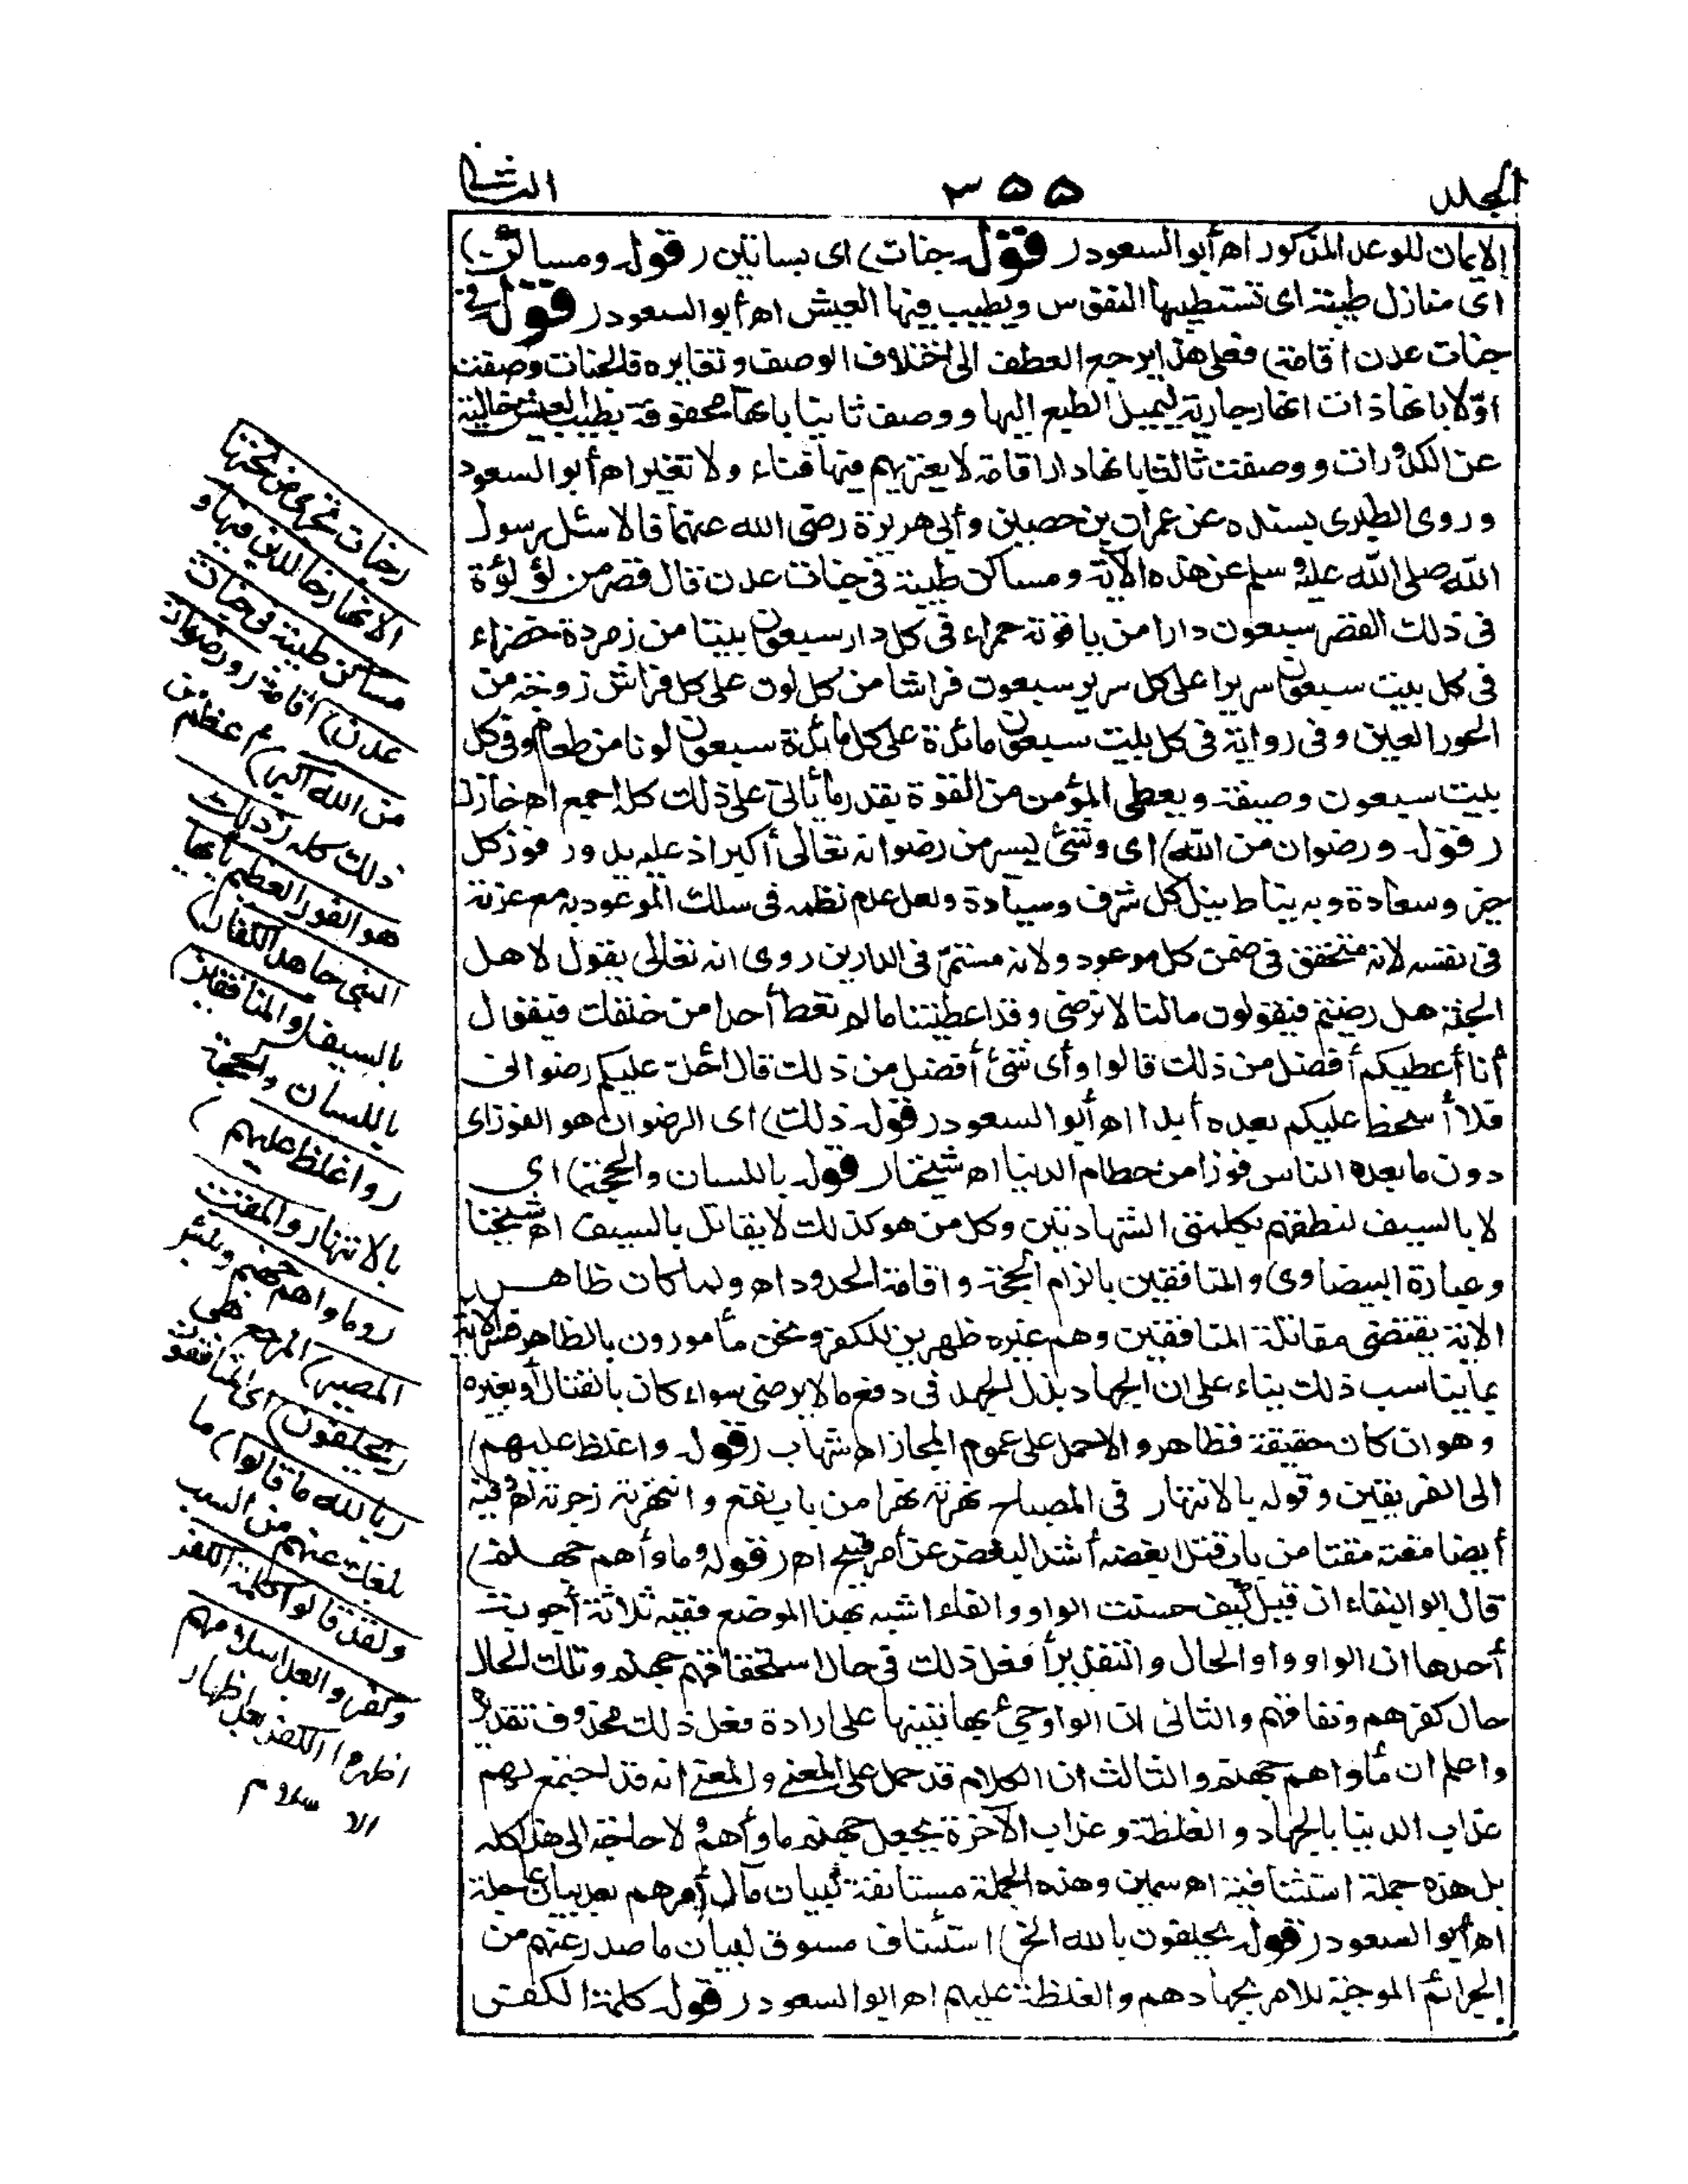 المجلد ٣٥٥ الثانى
الايمان للوعد المذكور اه أبو السعود (قوله جنات) اى بساتين (قوله ومساكن)
اى منازل طيبة اى تستطيبها النفوس ويطيب فيها العيش اه أبو السعود (قوله فى
جنات عدن اقامة) فعلى هذا يرجع العطف الى اختلاف الوصف وتغايره فالجنات وصفت
اوّلا بانها ذات انهار جارية ليميل الطبع اليها ووصف ثانيا بانها محفوفة بطيب العيش خالية
عن الكدورات ووصفت ثالثا بانها دار اقامة لا يعتريهم فيها فناء ولا تغير اه أبو السعود
وروى الطبرى بسنده عن عمران بن حصين وأبى هريرة رضى الله عنهما قالا سئل رسول
الله صلى الله عليه وسلم عن هذه الآية ومساكن طيبة فى جنات عدن قال قصر من لؤلؤة
فى ذلك القصر سبعون دارا من ياقوتة حمراء فى كل دار سبعون بيتا من زمردة خضراء
فى كل بيت سبعون سريرا على كل سرير سبعون فراشا من كل لون على كل فراش زوجة من
الحور العين وفى رواية فى كل بيت سبعون مائدة على كل مائدة سبعون لونا من طعام وفى كل
بيت سبعون وصيفة ويعطى المؤمن من القوة بقدر ما يأتى على ذلك كله اجمع اه خازن
(قوله ورضوان من الله) اى وشئ يسير من رضوانه تعالى أكبر اذ عليه يدور فوز كل
خير وسعادة وبه يناط نيل كل شرف وسيادة ولعل عدم نظمه فى سلك الموعود به مع عزته
فى نفسه لانه متحقق فى ضمن كل موعود ولانه مستمرّ فى الدارين روى انه تعالى يقول لاهل
الجنة هل رضيتم فيقولون مالنا لا نرضى وقد اعطيتنا ما لم تعط أحدا من خلقك فيقول
أنا أعطيكم أفضل من ذلك قالوا وأى شئ أفضل من ذلك قال أحلّ عليكم رضوانى
فلا أسخط عليكم بعده أبدا اه أبو السعود (قوله ذلك) اى الرضوان هو الفوز اى
دون ما يعده الناس فوزا من حطام الدنيا اه شيخنا (قوله باللسان والحجة) اى
لا بالسيف لنطقهم بكلمتى الشهادتين وكل من هو كذلك لا يقاتل بالسيف اه شيخنا
وعبارة البيضاوى والمنافقين بالزام الحجة واقامة الحدود اه ولما كان ظاهر
الآية يقتضى مقاتلة المنافقين وهم غير مظهرين للكفر ونحن مأمورون بالظاهر فسر الآية
بما يناسب ذلك بناء على ان الجهاد بذل الجهد فى دفع ما لا يرضى سواء كان بالقتال أو بغيره
وهو ان كان حقيقة فظاهر والا حمل على عموم المجاز اه شهاب (قوله واغلظ عليهم)
الى الفريقين وقوله بالانتهار فى المصباح نهرته نهرا من باب نفع وانتهرته زجرته اه وفيه
أيضا مقته مقتا من باب قتل ابغضه أشد البغض عن أمر قبيح اه (قوله ومأواهم جهنم)
قال ابو البقاء ان قيل كيف حسنت الواو والفاء اشبه بهذا الموضع ففيه ثلاثة أجوبة
أحدها ان الواو واو الحال والتقدير أفعل ذلك فى حال استحقاقهم جهنم وتلك الحال
حال كفرهم ونفاقهم والثانى ان الواو جئ بها تنبيها على ارادة فعل ذلك محذوف تقديره
واعلم ان مأواهم جهنم والثالث ان الكلام قد حمل على المعنى والمعنى انه قد اجتمع لهم
عذاب الدنيا بالجهاد والغلظة وعذاب الآخرة بجعل جهنم مأواهم ولا حاجة الى هذا كله
بل هذه جملة استئنافية اه سمين وهذه الجملة مستأنفة لبيان مآل أمرهم بعد بيان عاجله
اه أبو السعود (قوله يحلفون بالله الخ) استئناف مسوق لبيان ما صدر عنهم من
الجرائم الموجبة للامر بجهادهم والغلظة عليهم اه ابو السعود (قوله كلمة الكفر
(جنات تجرى من تحتها
الانهار خالدين فيها و
مساكن طيبة فى جنات
عدن) اقامة (ورضوان
من الله اكبر) اعظم من
ذلك كله (ذلك
هو الفوز العظيم يا ايها
النبى جاهد الكفار)
بالسيف (والمنافقين)
باللسان والحجة
(واغلظ عليهم)
بالانتهار والمقت
(ومأواهم جهنم وبئس
المصير) المرجع هى
(يحلفون) اى المنافقون
(بالله ما قالوا) ما
بلغك عنهم من السب
ولقد قالوا كلمة الكفر
وكفروا بعد اسلامهم
اظهروا الكفر بعد اظهار
الاسلام